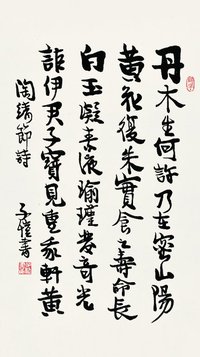 丹木生何許乃在密山陽
黃花復朱實食之壽命長
白玉凝素液瑜瑾發奇光
詎伊君子寶見重我軒黃
陶靖節詩
子愷書